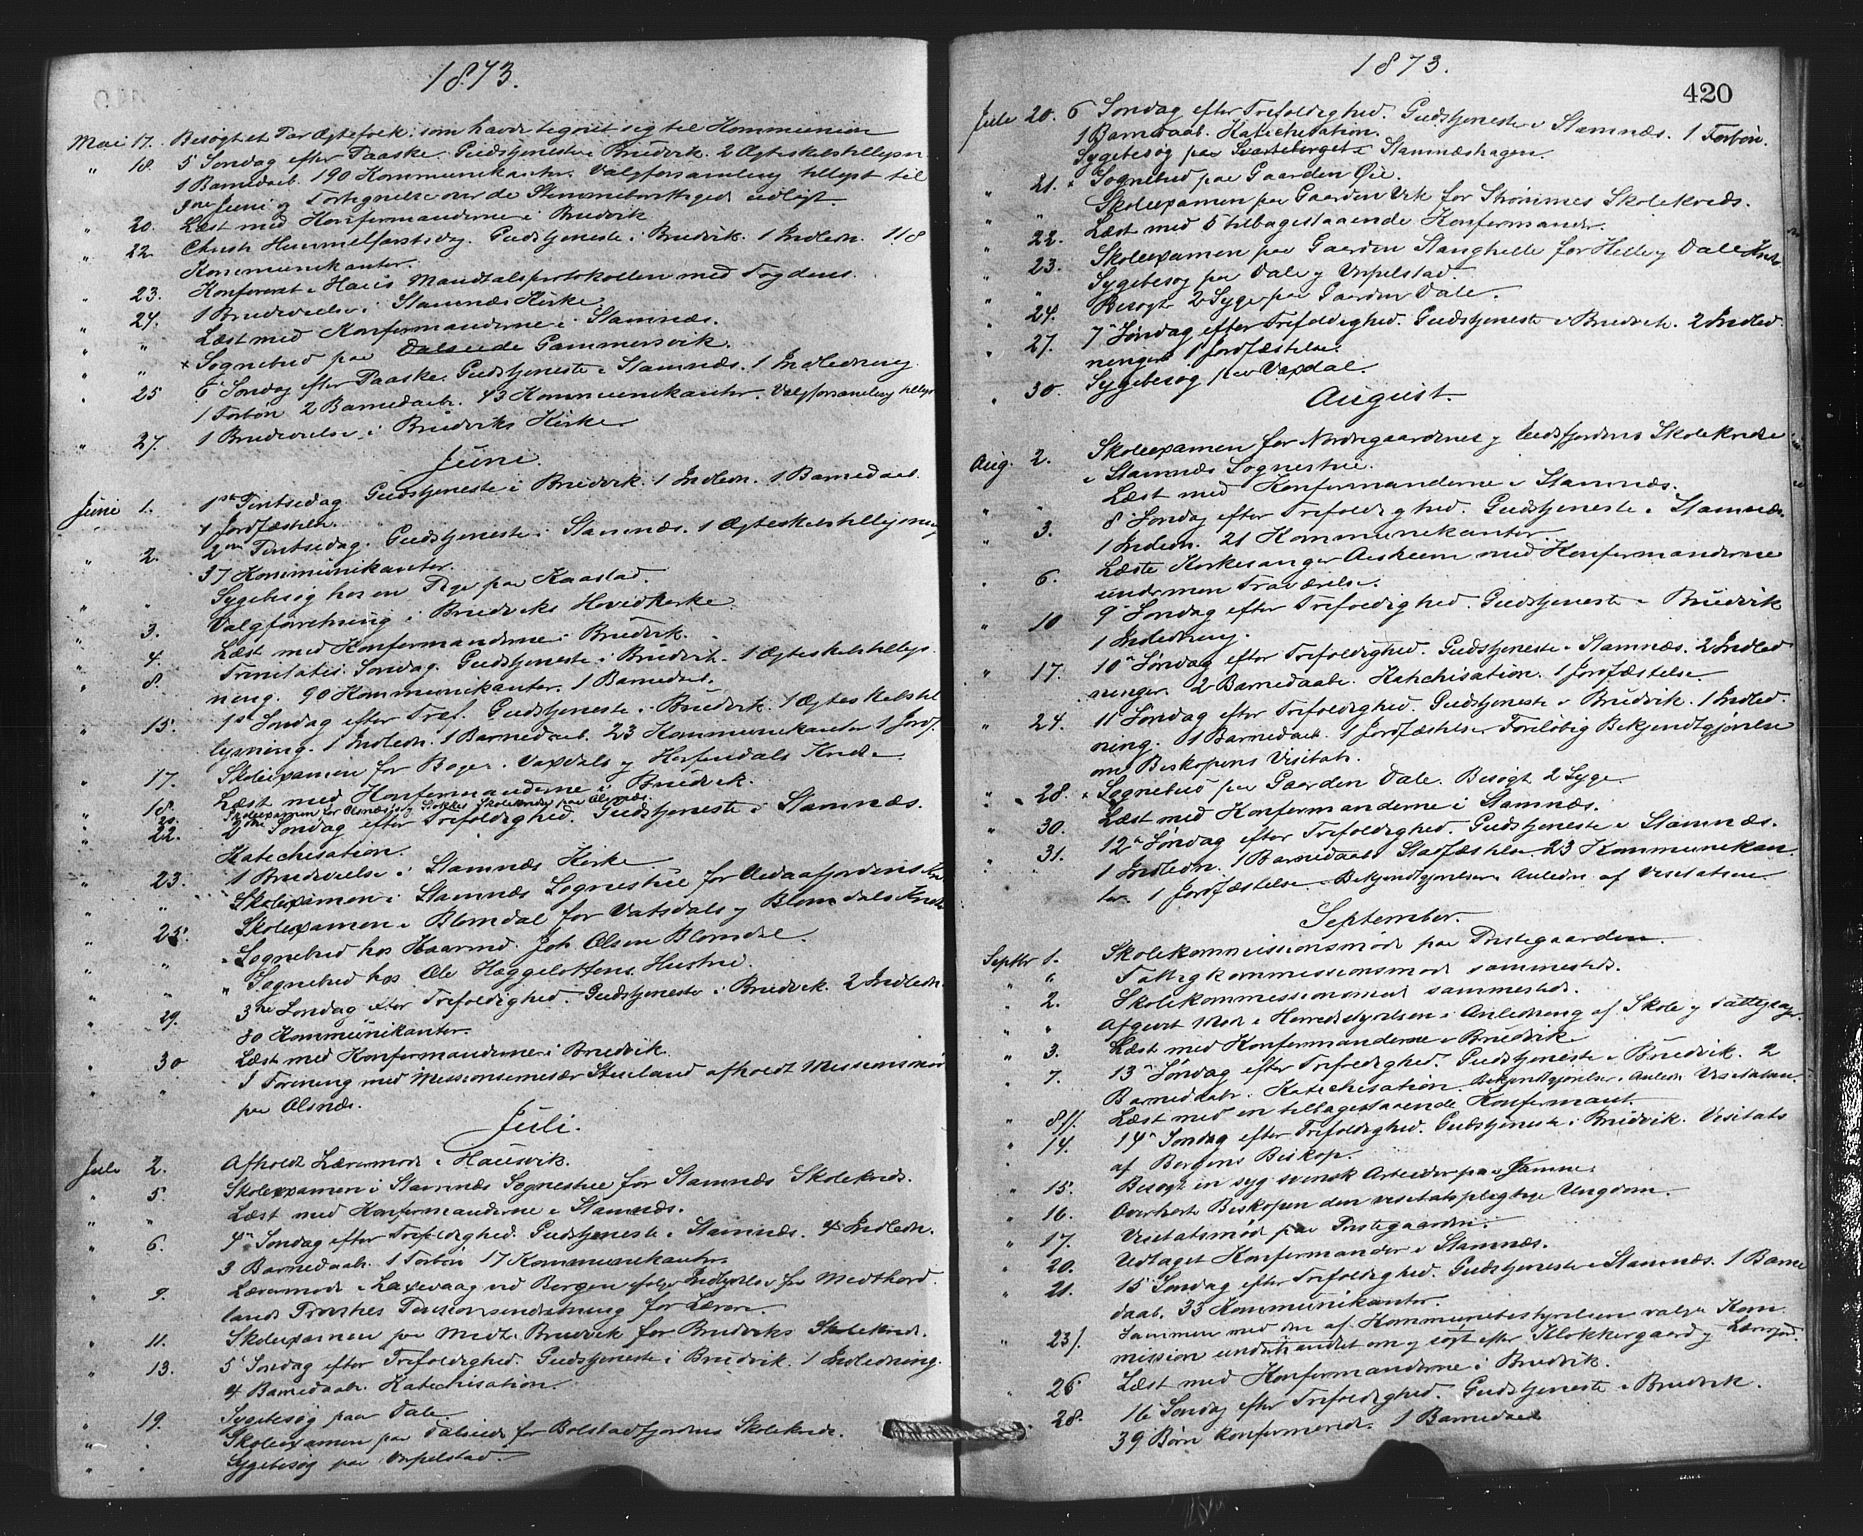 1873.
Mai 17. Besøgt et Par Ægtefolk, som havde tegnet sig til Kommunion
" 18. 5 Søndag efter Paaske. Gudstjeneste i Bruvik. 2 Ægteskabstillysn.
1 Barnedaab. 190 Kommunikanter. Valgforsamling tillyst til
3ne Juni og Fortegnelse over de Stemmeberettigede udlagt.
" 20. Læst med Konfirmanderne i Bruvik
" 22. Christi Himmelfartsdag. Gudstjeneste i Bruvik. 1 Indledn. 118
Kommunikanter.
" 23. Konfereret i Haus Mandtalsprotokollen med Fogdens.
" 24. 1 Brudevielse i Stamnæs Kirke
" " Læst med Konfirmanderne i Stamnæs.
" " × Sognebud paa Dalseide Gammersvik.
" 25 6 Søndag efter Paaske. Gudstjeneste i Stamnæs. 1 Indledning
1 Forbøn 2 Barnedaab. 43 Kommunikanter. Valgforsamling tillyst
" 27. 1 Brudevielse i Bruviks Kirke
Juni.
Juni 1. 1ste Pintsedag Gudstjeneste i Bruvik. 1 Indledn. 1 Barnedaab.
1 Jordfæstelse.
" 2. 2den Pintsedag. Gudstjeneste i Stamnæs. 1 Ægteskabstillysning
37 Kommunikanter.
" " Sygebesøg hos en Pige paa Kaastad.
" 3. Valgforretning i Bruviks Hovedkirke.
" 4. Læst med Konfirmanderne i Bruvik.
" 8. Trinitatis Søndag. Gudstjeneste i Bruvik. 1 Ægteskabstillys-
ning. 90 Kommunikanter. 1 Barnedaab.
" 15. 1ste Søndag efter Tref. Gudstjeneste i Bruvik. 1 Ægteskabstil
lysning. 1 Indledn. 1 Barnedaab. 23 Kommunikanter 1 Jordf.
" 17. Skoleexamen for Boge, Vaxdals og Herfindals Kreds
" 18. Læst med Konfirmanderne i Bruvik.
" 20. Skoleexamen for Alsnæs og Kreds paa Alsnæs.
" 22. 2den Søndag efter Trefoldighed. Gudstjeneste i Stamnæs.
Katechisation.
" 23. 1 Brudevielse i Stamnæs Kirke
" " Skoleexamen i Stamnæs Sognestue for
" 25. Skoleexamen i Blomdal for Vatsdals og Blomdals Kreds
" " Sognebud hos Haarmd. Joh Olsen Blomdal.
" " Sognebud hos Ole Hæggeloftens Hustru.
" 29. 3die Søndag efter Trefoldighed. Gudstjeneste i Bruvik. 2 Indledn.
30 Kommunikanter.
" 30 Læst med Konfirmanderne i Bruvik.
" " I Forening med Missionsemissær afholdt Missionsmøde
paa Alsnæs.
Juli.
Juli 2. Afholdt Lærermøde i Hausvik.
" 5. Skoleexamen i Stamnæs Sognestue for Stamnæs Skolekreds.
" " Læst med Konfirmanderne i Stamnæs.
" 6. 4de Søndag efter Trefoldighed. Gudstjeneste i Stamnæs. 4 Indledn.
3 Barnedaab. 1 Forbøn 17 Kommunikanter.
" 9. Lærermøde i Laxevaag ved Bergen efter Indbydelse fra Midthord-
lands Provsties Pensionsindretning for Lærere.
" 11. Skoleexamen paa Midt-Bruvik for Bruviks Skolekreds.
" 13. 5 Søndag efter Trefoldighed. Gudstjeneste i Bruvik. 1 Indledning.
4 Barnedaab. Katechisation.
" 19. Sygebesøg paa Dale.
" " Skoleexamen paa for Bolstadfjordens Skolekreds.
" " Sygebesøg paa Urpelstad.
1873.
420
Juli 20. 6 Søndag efter Trefoldighed. Gudstjeneste i Stamnæs. 1 Forbøn.
1 Barnedaab. Katechisation.
Sygebesøg paa Svarteberget i Stamnæshagen.
" 21. × Sognebud paa Gaarden Øie.
" " Skoleexamen paa Gaarden Vik for Strømmes Skolekreds.
" 22. Læst med 5 tilbagestaaende Konfirmander.
" 23. Skoleexamen paa Gaarden Stanghelle for Helle og Dale Kreds
" " Sygebesøg paa Dale og Urpelstad.
" 24. Besøgt 2 Syge paa Gaarden Dale.
" 27. 7de Søndag efter Trefoldighed. Gudstjeneste i Bruvik. 2 Indled
ninger 1 Jordfæstelse.
" 30. Sygebesøg paa Vaxdal.
August.
Aug. 2. Skoleexamen for Nordregaardenes og Eidsfjordens Skolekredse
i Stamnæs Sognestue.
" " Læst med Konfirmanderne i Stamnæs.
" 3. 8de Søndag efter Trefoldighed. Gudstjeneste i Stamnæs.
1 Indledn. 21 Kommunikanter.
" 6. Læste Kirkesanger med Konfirmanderne
under min Fraværelse.
" 10 9de Søndag efter Trefoldighed. Gudstjeneste i Bruvik
1 Indledning.
" 17. 10de Søndag efter Trefoldighed. Gudstjeneste i Stamnæs. 2 Indled
ninger. 2 Barnedaab. Katechisation. 1 Jordfæstelse
" 24. 11te Søndag efter Trefoldighed. Gudstjeneste i Bruvik. 1 Indled.
ning. 1 Barnedaab. 1 Jordfæstelse Foreløbig Bekjendtgjørelse
om Biskopens Visitats.
" 28. × Sognebud paa Gaarden Dale. Besøgt 2 Syge.
" 30. Læst med Konfirmanderne i Stamnæs.
" 31. 12te Søndag efter Trefoldighed. Gudstjeneste i Stamnæs.
1 Indledn. 1 Barnedaab Stadfæstelse. 23 Kommunikan-
ter. 1 Jordfæstelse. Bekjendtgjørelse i Anledn. af Visitatsen
September.
Septbr 1. Skolekommissionsmøde paa Præstegaarden.
" " Fattigkommissionsmøde sammesteds.
" 2. Skolekommissionsmøde sammesteds.
" " Afgivet Møde i Herredsstyrelsen i Anledning af Skole og Fattigsager.
" 3. Læst med Konfirmanderne i Bruvik
" 7. 13de Søndag efter Trefoldighed. Gudstjeneste i Bruvik. 2
Barnedaab. Katechisation. Bekjendtgjørelse i Anledn Visitatsen.
" 8 Læst med en tilbagestaaende Konfirmant.
" 14. 14de Søndag efter Trefoldighed. Gudstjeneste i Bruvik. Visitats
af Bergens Biskop.
" 15. Besøgt en syg svensk Arbeider paa
" 16. Overhørte Biskopen den visitatspligtige Ungdom.
" 17. Visitatsmøde paa Præstegaarden.
" 20. Udtaget Konfirmander i Stamnæs.
" 21. 15 Søndag efter Trefoldighed. Gudstjeneste i Stamnæs. 1 Barne
daab. 33 Kommunikanter.
" 23/. Sammen med den af Kommunebestyrelsen valgte Kom
mission underhandlet om og søgt efter Klokkergaard og
" 26 Læst med Konfirmanderne i Bruvik.
" 28. 16de Søndag efter Trefoldighed. Gudstjeneste i Bruvik.
39 Børn konfirmerede. 1 Barnedaab